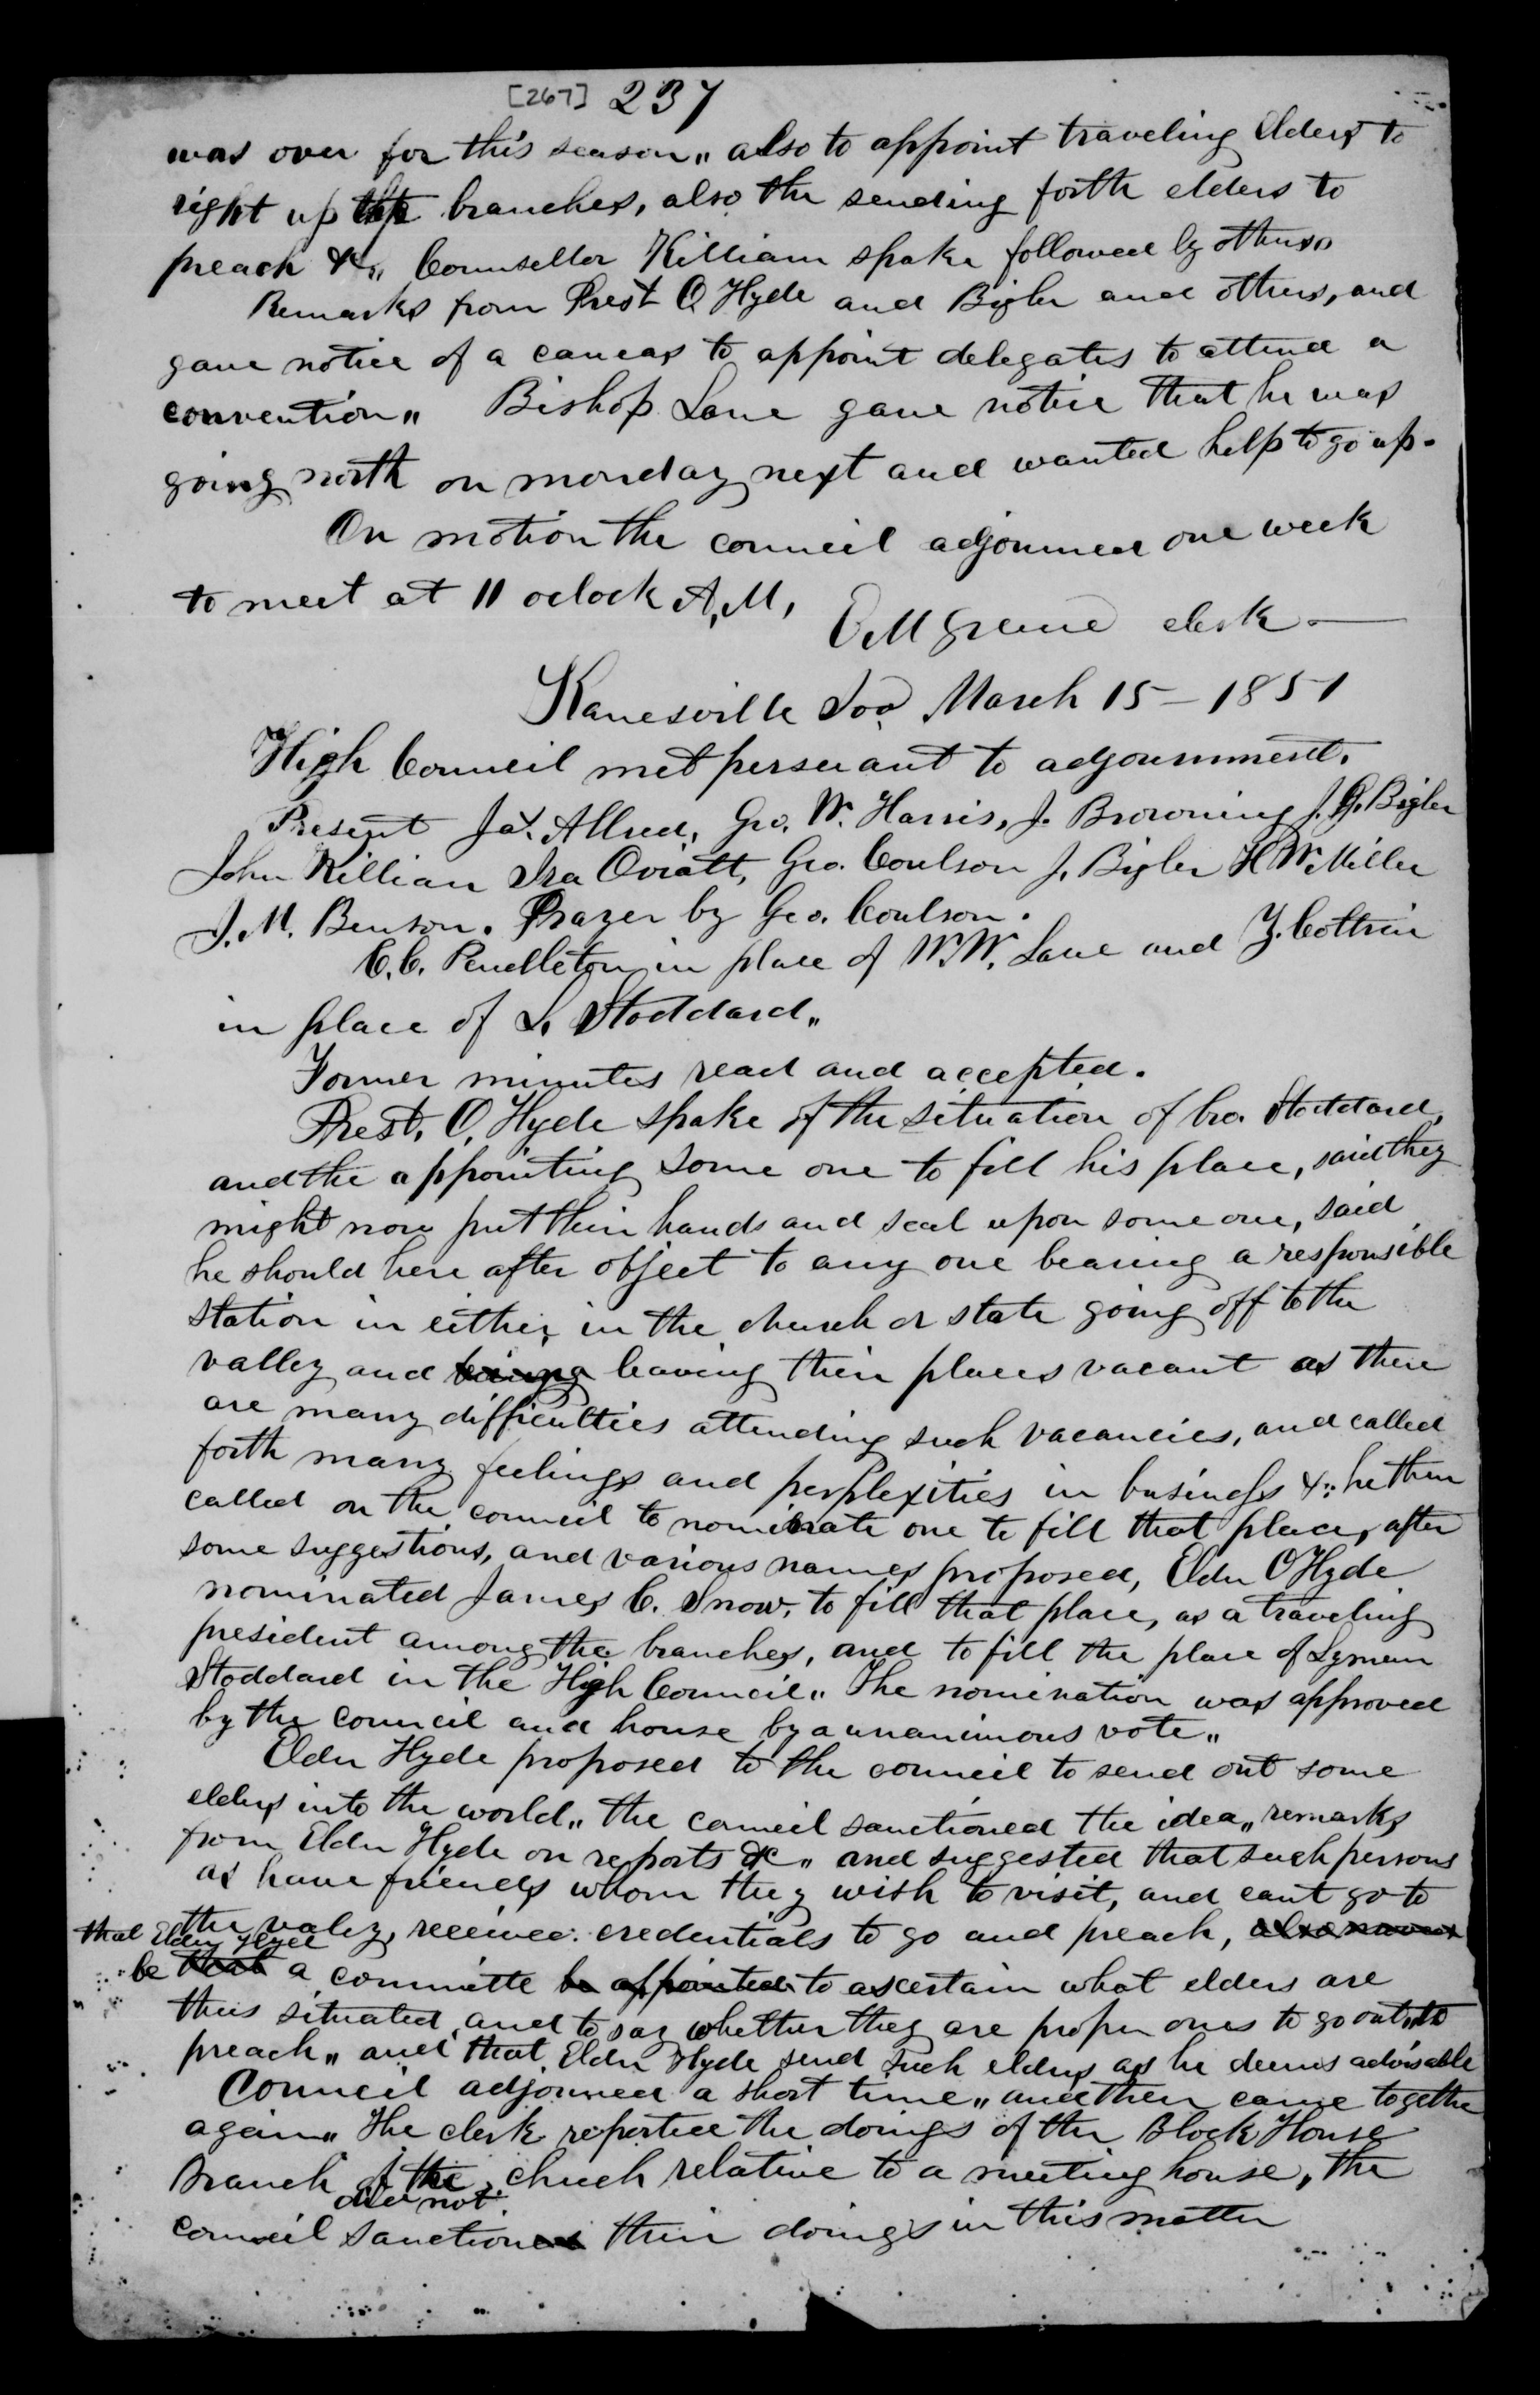 [267] 237
was over for this season„ also to appoint traveling Elders to
right up the branches, also the sending forth elders to
preach &c„ Counsellor Killian spake followed by others„
Remarks from Prest O Hyde and Bigler and others, and
gave notice of a caucas to appoint delegates to attend a
convention„ Bishop Lane gave notice that he was
going north on monday next and wanted help to go up.
On motion the council adjourned one week
to meet at 11 oclock A, M,
E, M Greene clerk —
Kanesville Ioa March 15 – 1851
High Council met persuant to adjournment.
Present Jas. Allred, Geo. W. Harris, J. Browning J. G. Bigler
John Killian Ira Oviatt, Geo. Coulson J. Bigler H W. Miller
J. M. Benson. Prayer by Geo. Coulson.
C. C. Pendleton in place of W. W. Lane and Z. Coltrin
in place of L. Stoddard„
Former minutes read and accepted.
Prest. O, Hyde spake of the situation of bro. Stoddard,
and the appointing some one to fill his place, said they
might now put their hands and seal upon some one, said
he should here after object to any one bearing a responsible
station in either in the church or state going off to the
valley and leaving their places vacant as there
are many difficulties attending such vacancies, and called
forth many feelings and perplexities in business &c: he then
called on the council to nominate one to fill that place, after
some suggestions, and various names proposed, Elder O Hyde
nominated James C. Snow, to fill that place, as a traveling
president among the branches, and to fill the place of Lyman
Stoddard in the High Council„ The nomination was approved
by the council and house by a unanimous vote„
Elder Hyde proposed to the council to send out some
elders into the world„ the council sanctioned the idea„ remarks
from Elder Hyde on reports &c„ and suggested that such persons
as have friends whom they wish to visit, and cant go to
the valey, receive credentials to go and preach,
that Elder Hyde
be that a committe be appointed to ascertain what elders are
thus situated, and to say whether they are proper ones to go out to
preach„ and that Elder Hyde send such elders as he deems advisable
Council adjourned a short time„ and then came together
again„ The clerk reported the doings of the Block House
Branch of the chuch relative to a meeting house, the
did not
council sanctioned their doings in this matter